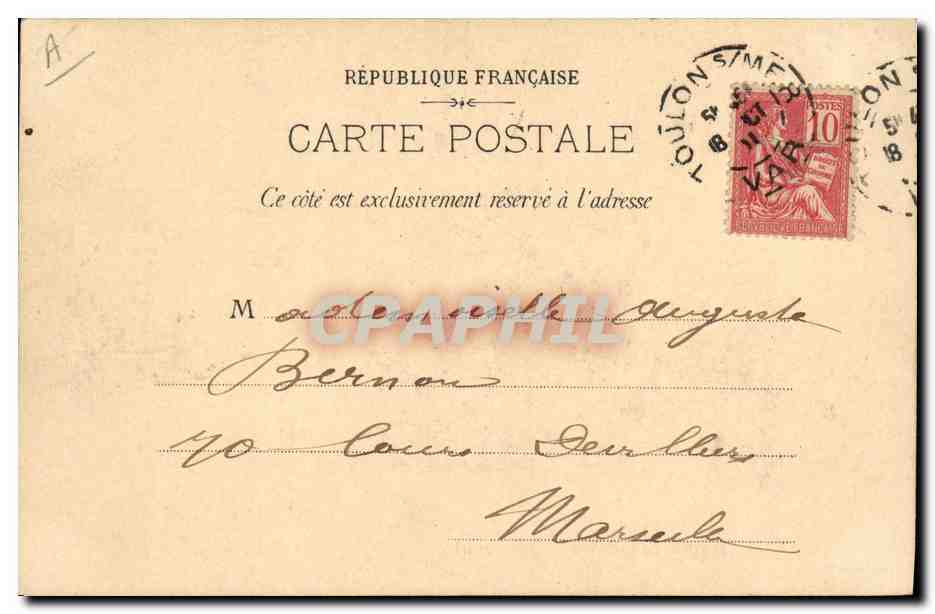 A
RÉPUBLIQUE FRANÇAISE
CARTE POSTALE
Ce côté est exclusivement réservé à l'adresse
TOULON S/MER
VAR
POSTES
10
RÉPUBLIQUE FRANÇAISE
CPAPHIL
Mademoiselle Augusta
Bernon
70 Cours Devilliers
Marseille